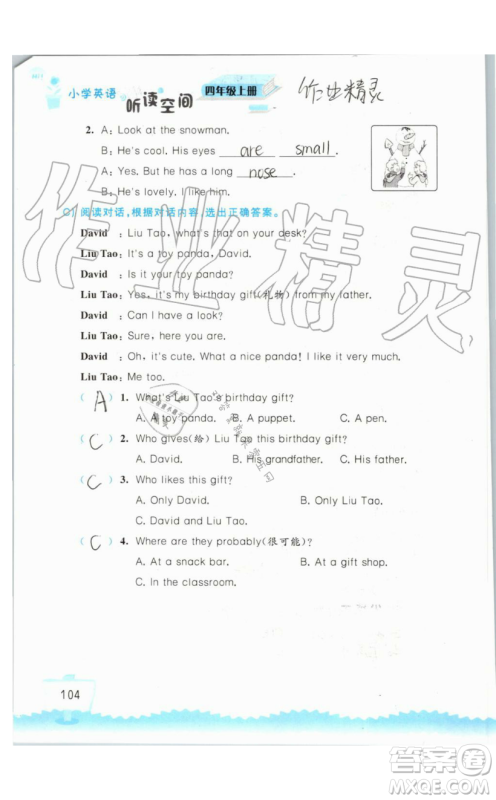 小学英语
听读空间
四年级上册
作业精灵
2. A: Look at the snowman.
B: He's cool. His eyes are small.
A: Yes. But he has a long nose.
B: He's lovely. I like him.
C) 阅读对话,根据对话内容,选出正确答案。
David : Liu Tao, what's that on your desk?
Liu Tao: It's a toy panda.
David : Is it your toy panda?
Liu Tao: Yes, it's my birthday gift(礼物) from my father.
David : Can I have a look?
Liu Tao: Sure, here you are.
David : Oh, it's cute. What a nice panda! I like it very much.
Liu Tao: Me too.
( A ) 1. What's Liu Tao's birthday gift?
A. A toy panda. B. A puppet. C. A pen.
( C ) 2. Who gives(给) Liu Tao this birthday gift?
A. David. B. His grandfather. C. His father.
( C ) 3. Who likes this gift?
A. Only David. B. Only Liu Tao.
C. David and Liu Tao.
( C ) 4. Where are they probably(很可能)?
A. At a snack bar. B. At a gift shop.
C. In the classroom.
104
作业精灵
答案圈
MXQE.COM